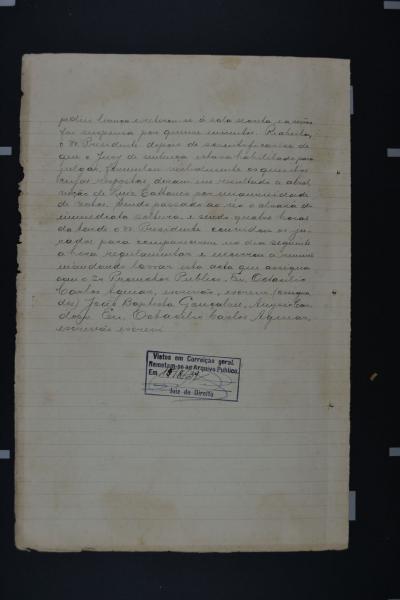 pediu licença e retirou-se á sala secreta, a sessão
foi suspensa por quinze minutos. Reaberta,
o Dr. Presidente depois de scientificar-se de
que o Jury de sentença estava habilitado para
julgar, formulou verbalmente os quesitos
cujas respostas deram em resultado a absol
vição de Luiz por unanimidade
de votos. Sendo passado ao réo o alvará de
immediata soltura e sendo quatro horas
da tarde o Dr. Presidente convidou os ju-
rados para comparecerem no dia seguinte
a hora regulamentar e encerrou a sessão
mandando lavrar esta acta que assigna
com o Dr. Promotor Publico. Eu, Octacilio
Carlos Aguiar, escrivão, escrevi. (assigna
dos) João Baptista Gonçalves, Augusto Car
doso. Eu, Octacilio Carlos Aguiar,
escrivão escrevi
Vistos em Correição geral.
Remettam-se ao Archivo Publico.
Em
Juiz de Direito